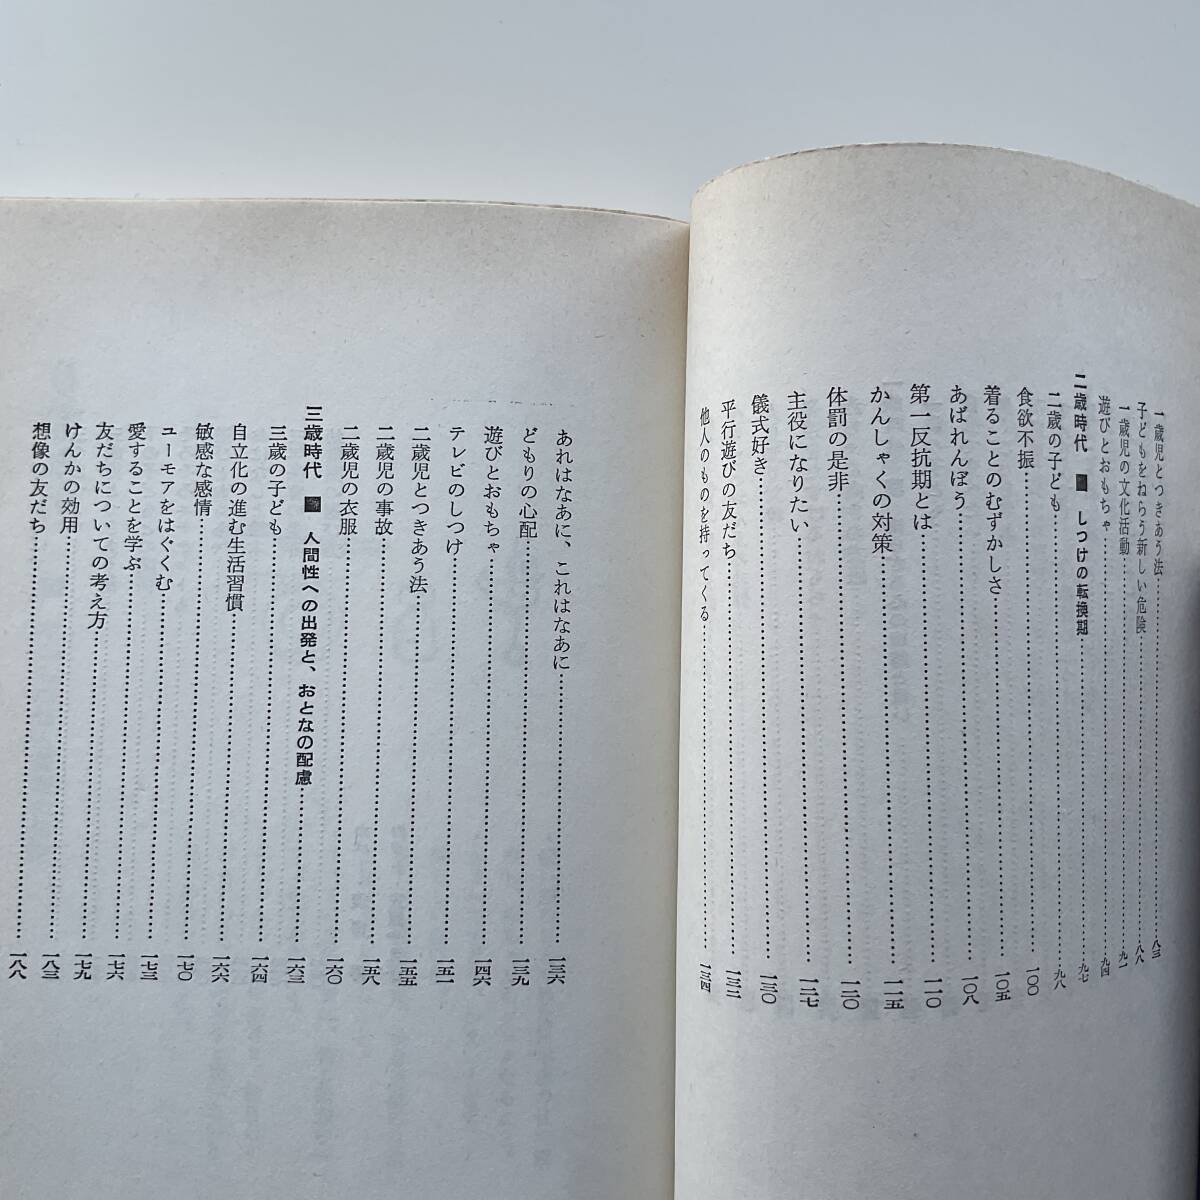 一歳児とつきあう法……八三
子どもをねらう新しい危険……八八
一歳児の文化活動……九一
遊びとおもちゃ……九四
二歳時代 ■ しつけの転換期……九七
二歳の子ども……九八
食欲不振……一〇〇
着ることのむずかしさ……一〇五
あばれんぼう……一〇八
第一反抗期とは……一一〇
かんしゃくの対策……一一五
体罰の是非……一二〇
主役になりたい……一二七
儀式好き……一三〇
平行遊びの友だち……一三二
他人のものを持ってくる……一三四
あれはなあに、これはなあに……一三六
どもりの心配……一三九
遊びとおもちゃ……一四六
テレビのしつけ……一五一
二歳児とつきあう法……一五五
二歳児の事故……一五八
二歳児の衣服……一六〇
三歳時代 ■ 人間性への出発と、おとなの配慮……一六三
三歳の子ども……一六四
自立化の進む生活習慣……一六六
敏感な感情……一七〇
ユーモアをはぐくむ……一七三
愛することを学ぶ……一七六
友だちについての考え方……一七九
けんかの効用……一八三
想像の友だち……一八八